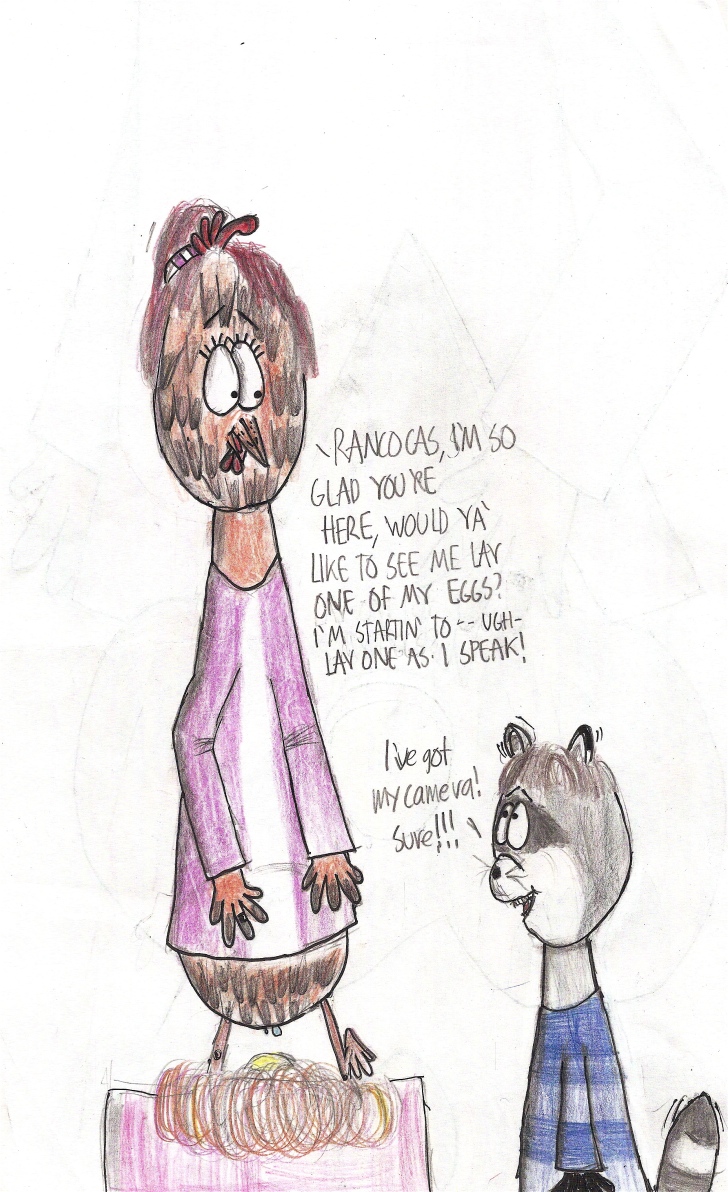 RANCOCAS, I'M SO
GLAD YOU'RE
HERE, WOULD YA'
LIKE TO SEE ME LAY
ONE OF MY EGGS?
I'M STARTIN' TO -- UGH-
LAY ONE AS I SPEAK!
I've got
my camera!
Sure!!!